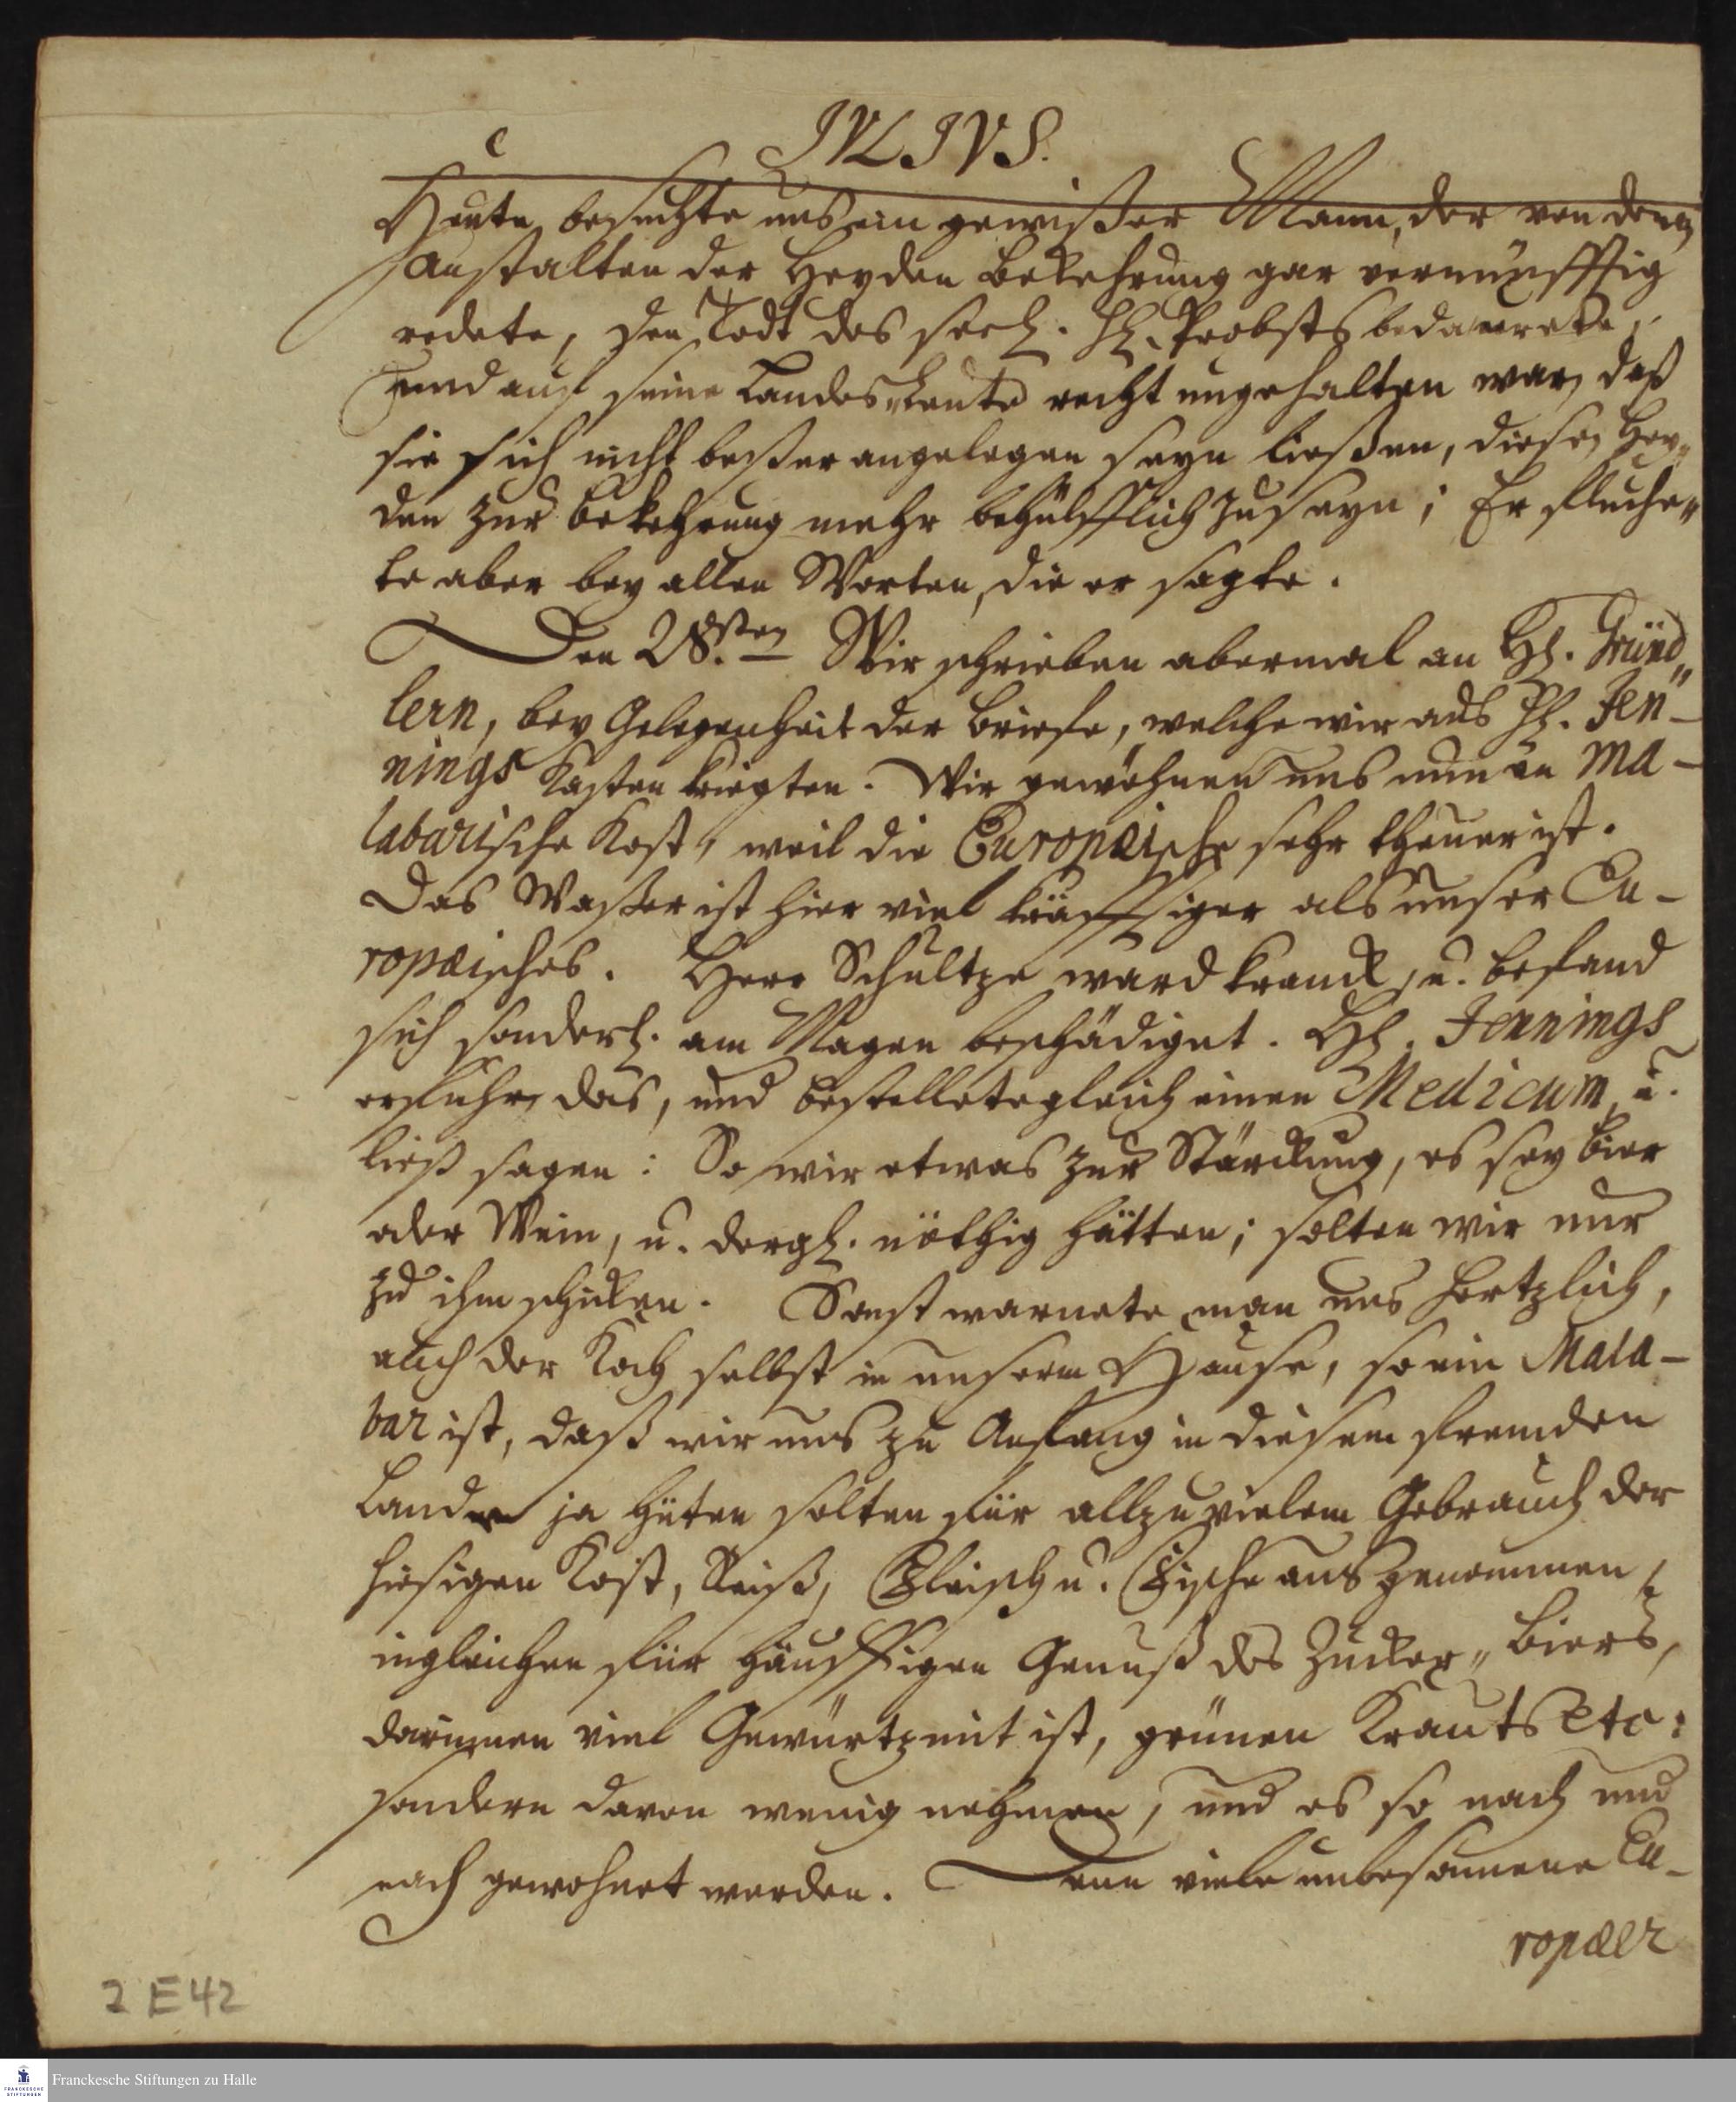 c
JVLIVS.
Heute besuchte uns ein gewißer Mann, der von den
Anstalten der Heyden Bekehrung gar vernünfftig
redete, den Todt des seel. H. Probsts bedaurete,
und auf seine Landes-Leute recht ungehalten war, daß
sie sich nicht beßer angelegen seyn ließen, diese Hey„
den zur Bekehrung mehr behülfflich zu seyn; Er fluche„
te aber bey allen Worten, die er sagte.
Den 28.sten Wir schrieben abermal an H. Gründ„
lern, bey Gelegenheit der Briefe, welche wir aus H. Jen-
nings Kasten kriegten. Wir gewöhnen uns nun an Ma-
labarische Kost, weil die Europæische sehr theuer ist.
Das Waßer ist hier viel kräfftiger als unser Eu-
ropæisches. Herr Schultze ward kranck, u. befand
sich sonderl. am Magen beschädiget. H. Jennings
erfuhr das, und bestellete gleich einen Medicum, u.
ließ sagen: So wir etwas zur Stärckung, es sey Bier
oder Wein, u. dergl. nöthig hätten; solten wir nur
zu ihm schicken. Sonst warnete man uns hertzlich,
auch der Koch selbst in unserm Hause, so ein Mala-
bar ist, daß wir uns zu Anfang in diesem fremden
Lande ja hüten solten für allzu vielem Gebrauch der
hiesigen Kost, Reiß, Fleisch u. Fische ausgenommen,
ingleichen für häuffigen Genuß des Zucker„Biers,
darinnen viel Gewürtz mit ist, grünen Krauts etc:
sondern davon wenig nehmen, und es so nach und
nach gewohnet werden. Denn viele unbesonnene Eu-
ropæer
2 E 42
FRANCKESCHE
STIFTUNGEN
Franckesche Stiftungen zu Halle